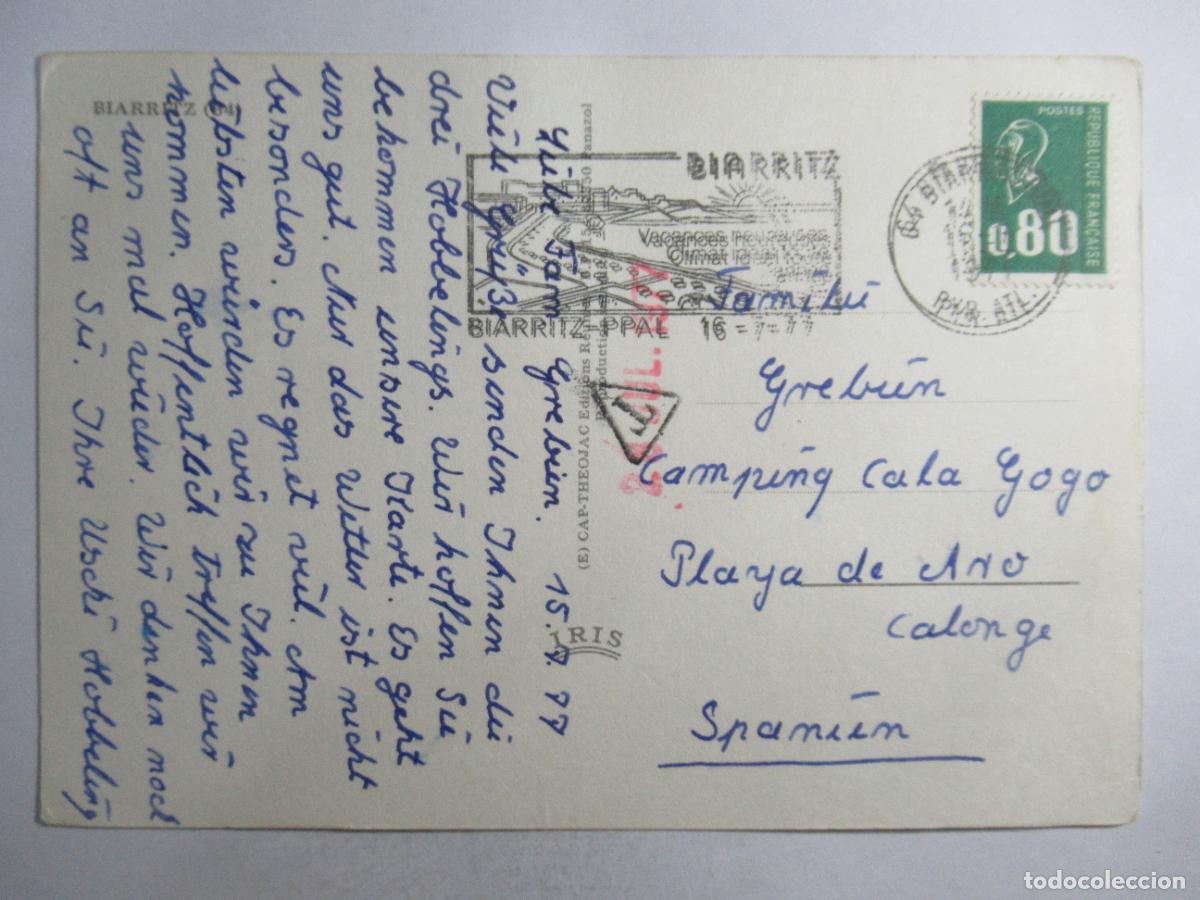 BIARRITZ (64)
Liebe Fam. Grebien. 15.7.77
Viele Grüße senden Ihnen die
drei Hobbelings. Wir hoffen Sie
bekommen unsere Karte. Es geht
uns gut. Nur das Wetter ist nicht
besonders. Es regnet viel. Am
liebsten würden wir zu Ihnen
kommen. Hoffentlich treffen wir
uns mal wieder. Wir denken noch
oft an Sie. Ihre Uschi Hobbeling
(E) CAP-THEOJAC Editions
Panazol
IRIS
BIARRITZ
Vacances
Climat
BIARRITZ-PPAL 16-7-77
64 BIARRITZ
PYR. ATL.
T
JUL. 1977
POSTES
REPUBLIQUE FRANÇAISE
0,80
Familie
Grebien
Camping Cala Gogo
Playa de Aro
Calonge
Spanien
todocoleccion